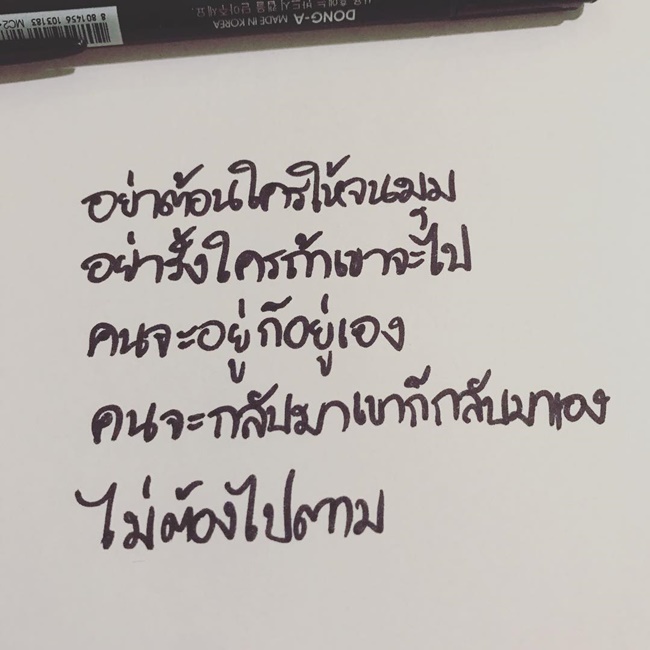 8 801456 103183 MC2
DONG-A MADE IN KOREA
อย่าต้อนใครให้จนมุม
อย่ารั้งใครถ้าเขาจะไป
คนจะอยู่ก็อยู่เอง
คนจะกลับมาเขาก็กลับมาเอง
ไม่ต้องไปตาม